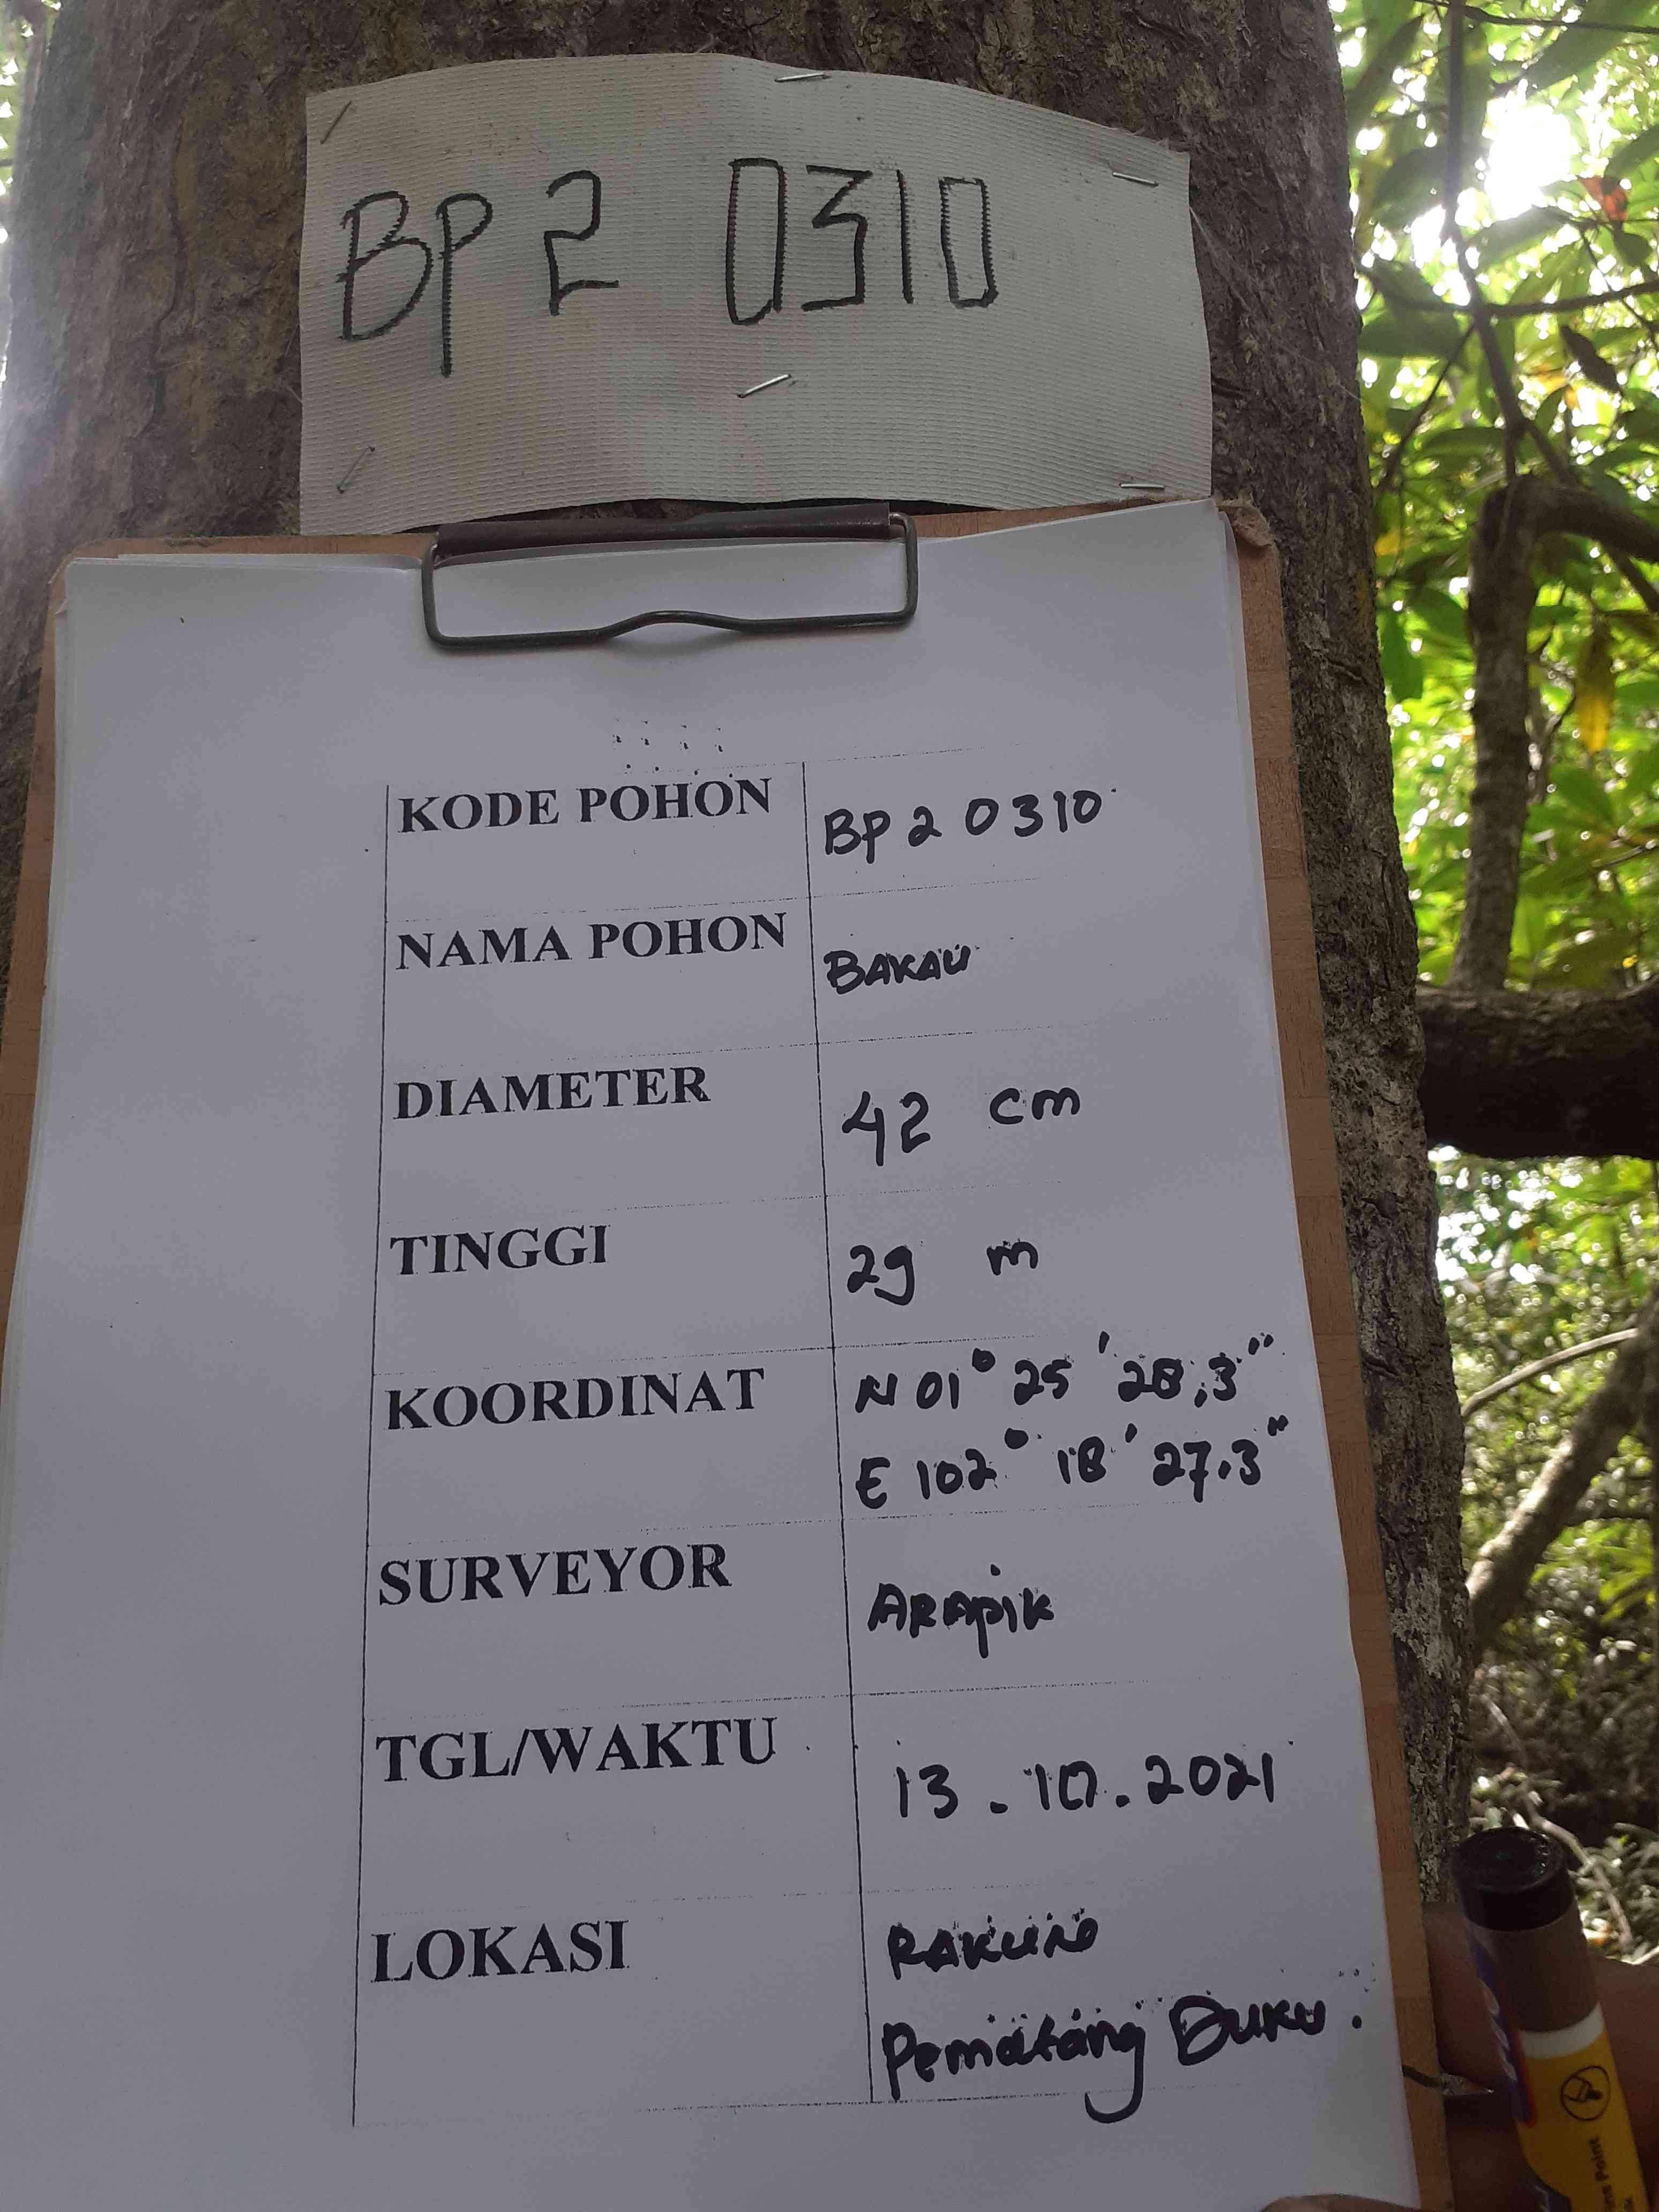 BP 2 0310
KODE POHON BP 2 0310
NAMA POHON BAKAU
DIAMETER 42 cm
TINGGI 29 m
KOORDINAT N 01° 25 ' 28,3"
E 102° 18 ' 27.3"
SURVEYOR ARAPIK
TGL/WAKTU 13.10.2021
LOKASI
Pematang Duku.